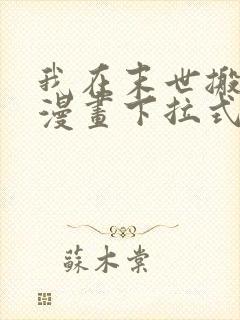 我在末世搬
漫畫下拉式
蘇木棠